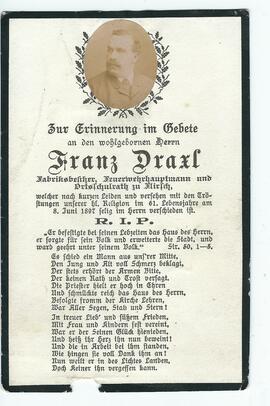 Zur Erinnerung im Gebete
an den wohlgebornen Herrn
Franz Draxl
Fabriksbesitzer, Feuerwehrhauptmann und
Ortsschulrath zu
welcher nach kurzen Leiden und versehen mit den Trö-
stungen unserer hl. Religion im 61. Lebensjahre am
8. Juni 1897 selig im Herrn verschieden ist.
R. I. P.
„Er befestigte bei seinen Lebzeiten das Haus des Herrn,
er sorgte für sein Volk und erweiterte die Stadt, und
ward geehrt unter seinem Volk.“ Sir. 50, 1—5.
Es schied ein Mann aus uns'rer Mitte,
Den Jung und Alt voll Schmerz beklagt,
Der stets erhört der Armen Bitte,
Der keinem Rath und Trost versagt.
Die Priester hielt er hoch in Ehren
Und schmückte reich das Haus des Herrn,
Befolgte fromm der Kirche Lehren,
War Aller Segen, Stab und Stern!
In treuer Lieb' und süßem Frieden,
Mit Frau und Kindern fest vereint,
War er der Seinen Glück hienieden,
Und heiß ihr Herz ihn nun beweint
Und die in Arbeit bei ihm standen,
Wie hingen sie voll Dank ihm an!
Nun weilt er in des Lichtes Landen,
Doch Keiner ihn vergessen kann.